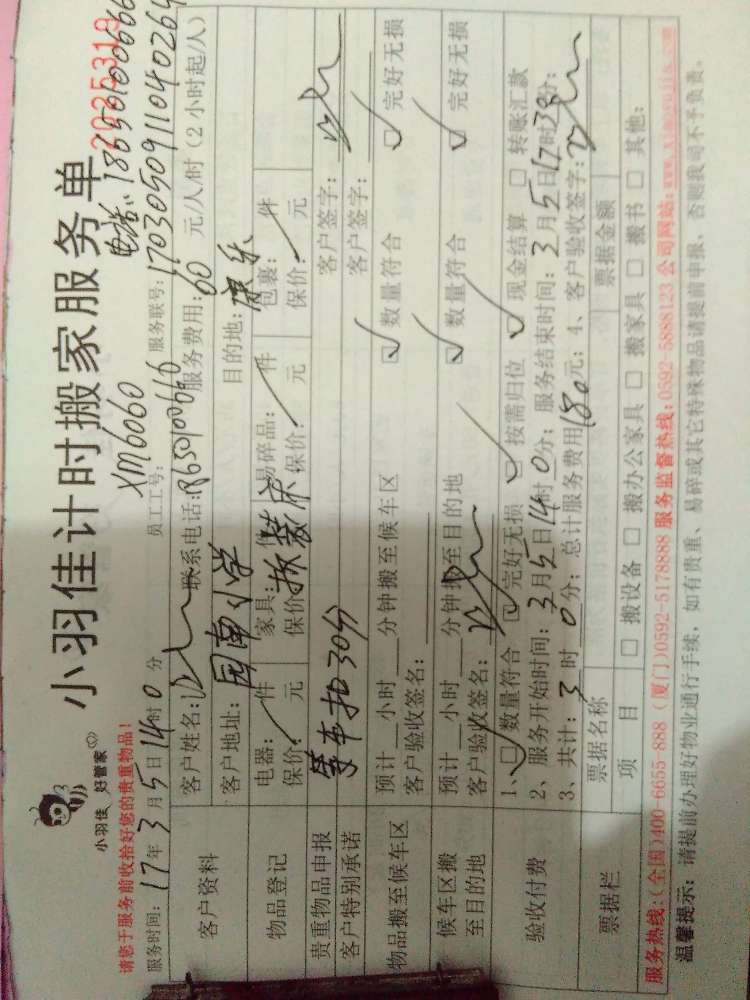 小羽佳 好管家
小羽佳计时搬家服务单
2025319
请您于服务前收拾好您的贵重物品！
XM6060
电话：18650100666
服务时间：17年3月5日14时0分 员工工号： 服务联号：170305091104026
客户资料
客户姓名： 联系电话：8650100660 服务费用：60 元/人/时（2小时起/人）
客户地址：园南小学 目的地：康乐
物品登记
电器： 件 家具： 件 易碎品： 件 包裹： 件
保价： 元 保价： 拆装床 保价： 元 保价： 元
贵重物品申报 客户签字：
客户特别承诺 等车扣30分 客户签字：
物品搬至候车区
预计 小时 分钟搬至候车区 数量符合 完好无损
客户验收签名：
候车区搬至目的地
预计 小时 分钟搬至目的地 数量符合 完好无损
客户验收签名：
验收付费
1、 数量符合 完好无损 按需归位 现金结算 转账汇款
2、服务开始时间：3月5日14时0分；服务结束时间：3月5日17时30分；
3、共计：3时0分；总计服务费用180元；4、客户验收签字：
票据栏
票据名称 票据金额
项目 搬设备 搬办公家具 搬家具 搬书 其他：
服务热线：(全国)400-6655-888 (厦门)0592-5178888 服务监督热线：0592-5888123 公司网站：www.xiaoyujia.com
温馨提示：请提前办理好物业通行手续，如有贵重、易碎或其它特殊物品请提前申报，否则我司不予负责。